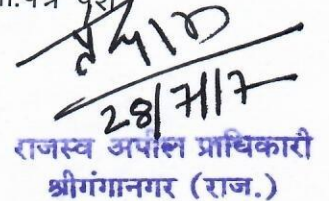 28/7/17
राजस्व अपील प्राधिकारी
श्रीगंगानगर (राज.)